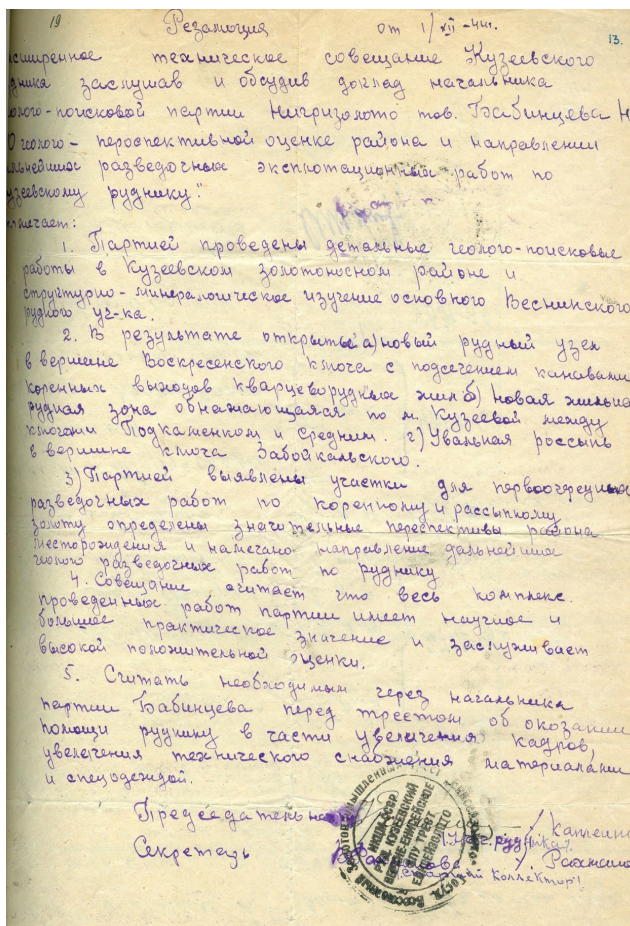 19
13.
Резолюция от 1/XII-44г.
ксширенное техническое совещание Кузеевского
дника заслушав и обсудив доклад начальника
олого-поисковой партии Нигризолото тов. Бабинцева Н
О геолого-пероспективной оценке района и направлении
льнейших разведочных эксплотационных работ по
узеевскому руднику."
мечает:
1. Партией проведены детальные геолого-поисковые
работы в Кузеевском золотоносном районе и
структурно-минералогическое изучение основного Веснинского
рудного уч-ка.
2. В результате открыты: а) новый рудный узел
в вершине Воскресенского ключа с подсечением канавами
коренных выходов кварцеворудных жил б) новая жильная
рудная зона обнажающаяся по м. Кузеевой между
ключами Подкаменком и Средним. г) Увальная россыпь
в вершине ключа Забойкальского.
3) Партией выявлены участки для первоочередных
разведочных работ по коренному и рассыпному
золоту определены значительные перспективы района
месторождения и намечано направление дальнейших
геолого разведочных работ по руднику
4. Совещание считает что весь комплекс
проведенных работ партии имеет научное и
большое практическое значение и заслуживает
высокой положительной оценки.
5. Считать необходимым через начальника
партии Бабинцева перед трестом об оказании
помощи руднику в части увеличения кадров,
увелечения технического снабжения материалами
и спецодеждой.
Председатель
Нач. рудника/
Секретарь
Старший Коллектор/
НКЦМ-СССР
КУЗЕЕВСКИЙ